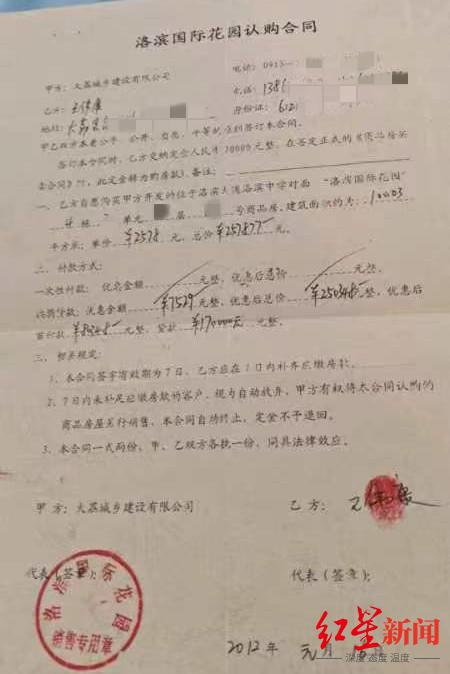 洛滨国际花园认购合同
甲方：大荔城乡建设有限公司
电话：0913-
乙方：
电话：138
地址：大荔县
身份证：612
甲乙双方本着公平、公开、自愿、平等的原则签订本合同。
签订本合同时，乙方交纳定金人民币10000元整，在签定正式的《商品房买
卖合同》时，此定金转为购房款。备注：
一、乙方自愿购买甲方开发的位于洛滨大道洛滨中学对面“洛滨国际花园”
单元 层 号商品房，建筑面积约为：
平方米；单价 ¥2578 元，总价 元。
二、付款方式：
一次性付款：优惠金额 元整，优惠后总价 元整。
优惠金额 ¥7529 元整，优惠后总价 元整，优惠后
首付款 元整，贷款 ¥170000元 元整。
三、相关规定：
1、本合同签字有效期为7日，乙方应在7日内补齐应缴房款。
2、7日内未补足应缴房款的客户，视为自动放弃，甲方有权将本合同认购的
商品房屋另行销售，本合同自动终止，定金不予退回。
3、本合同一式两份，甲、乙双方各执一份，同具法律效应。
甲方：大荔城乡建设有限公司
乙方：
代表（签章）：
代表（签章）：
洛滨国际花园
2012年 元月
红星新闻
深度 态度 温度